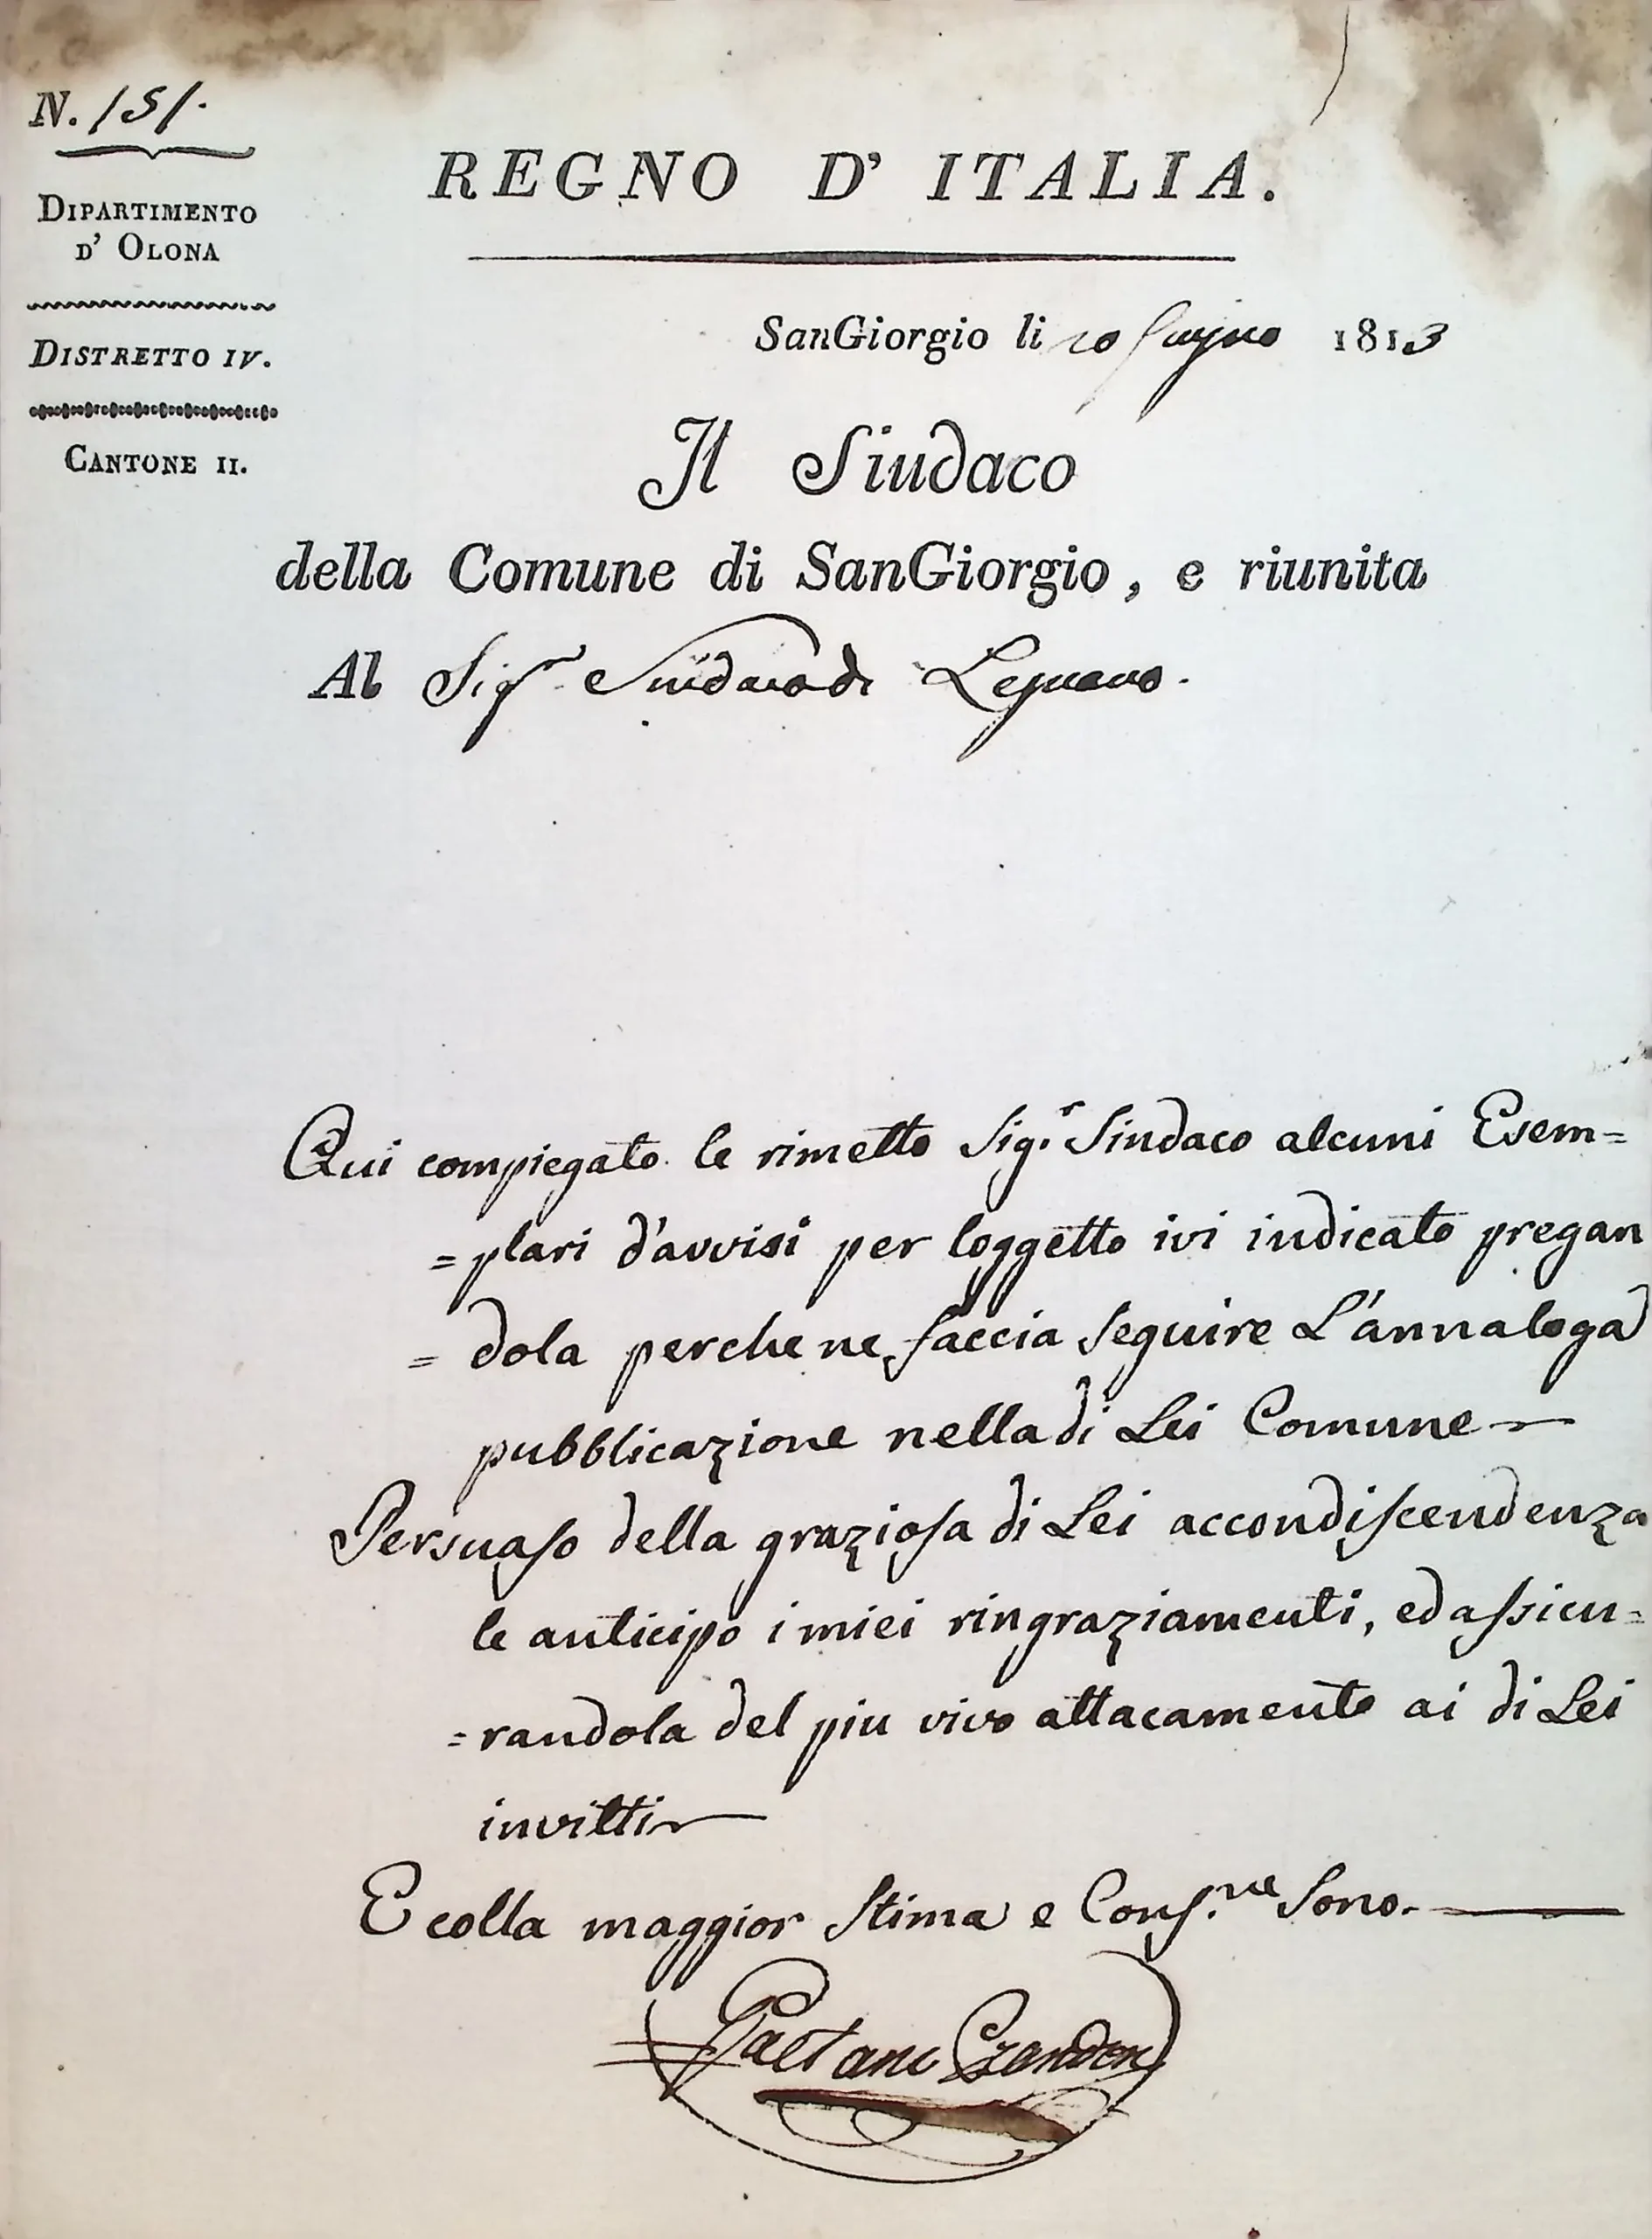 N. 151.
DIPARTIMENTO
D' OLONA
DISTRETTO IV.
CANTONE II.
REGNO D' ITALIA.
SanGiorgio li 10 Giugno 1813
Il Sindaco
della Comune di SanGiorgio, e riunita
Al Sig.r Sindaco di Legnano.
Qui compiegato le rimetto Sig.r Sindaco alcuni Esem=
=plari d'avvisi per loggetto ivi indicato pregan
=dola perche ne faccia seguire L'annaloga
pubblicazione nella di Lei Comune
Persuaso della graziosa di Lei accondiscendenza
le anticipo i miei ringraziamenti, ed assicu=
=randola del piu vivo attacamento ai di Lei
invitti
E colla maggior Stima e Cons.ne Sono.
Gaetano